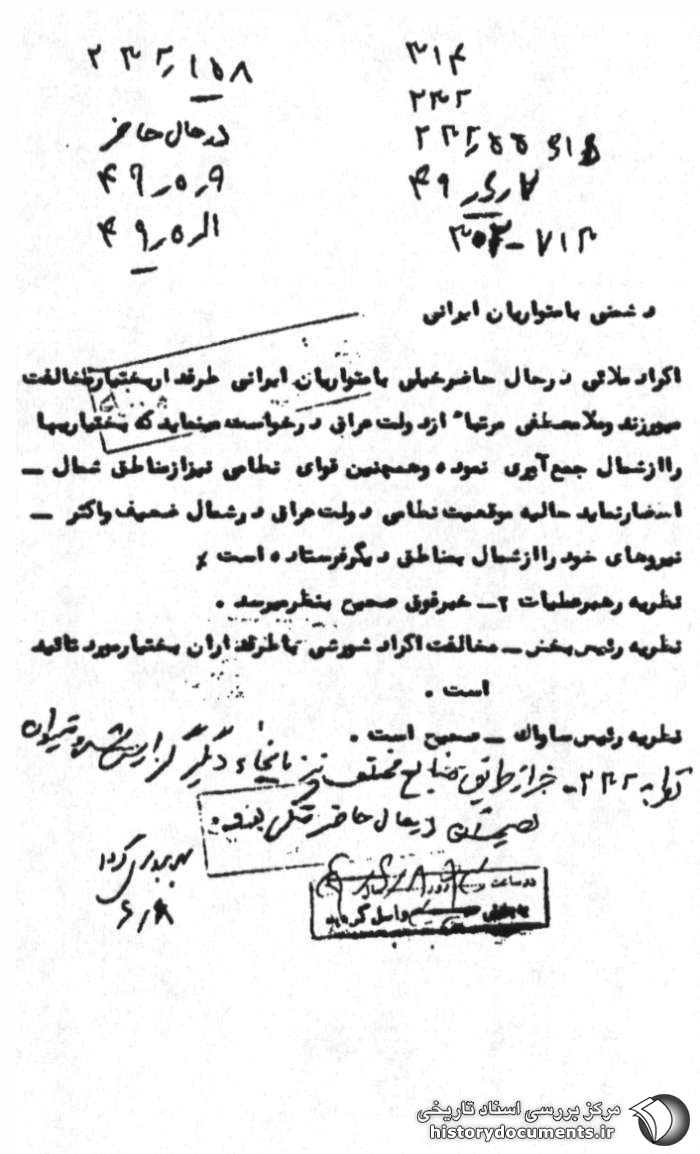 ۳۱۴
۲۳۲
۷ر۶ر۴۹
۳۰۲-۷۱۳
در حال حاضر
۹ر۵ر۴۹
دشمنی با متواریان ایرانی
اکراد ملائی درحال حاضر خیلی با متواریان ایرانی طرفدار بختیار مخالفت
میورزند وملا مصطفی مرتبا" ازدولت عراق درخواست مینماید که بختیاریها
را ازشمال جمع آوری نموده وهمچنین قوای نظامی نیز ازمناطق شمال —
احضار نماید حالیه موقعیت نظامی دولت عراق درشمال ضعیف واکثر —
نیروهای خود را ازشمال بمناطق دیگر فرستاده است
نظریه رهبر عملیات ۲— خبر فوق صحیح بنظر میرسد .
نظریه رئیس بخش — مخالفت اکراد شورشی با طرفداران بختیار مورد تائید
است .
نظریه رئیس ساواک — صحیح است .
خبر از طریق منابع مختلف نیز باینجا گزارش
در حال حاضر
در ساعت روز
به بخش واصل گردید
۶ر۸
مرکز بررسی اسناد تاریخی
historydocuments.ir